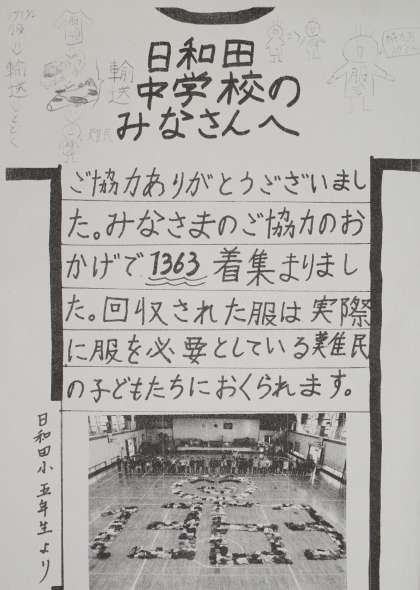 日和田
中学校の
みなさんへ
輸送
難民
ご協力ありがとうございまし
た。みなさまのご協力のお
かげで 1363 着集まりまし
た。回収された服は実際
に服を必要としている難民
の子どもたちにおくられます。
日和田小五年生より